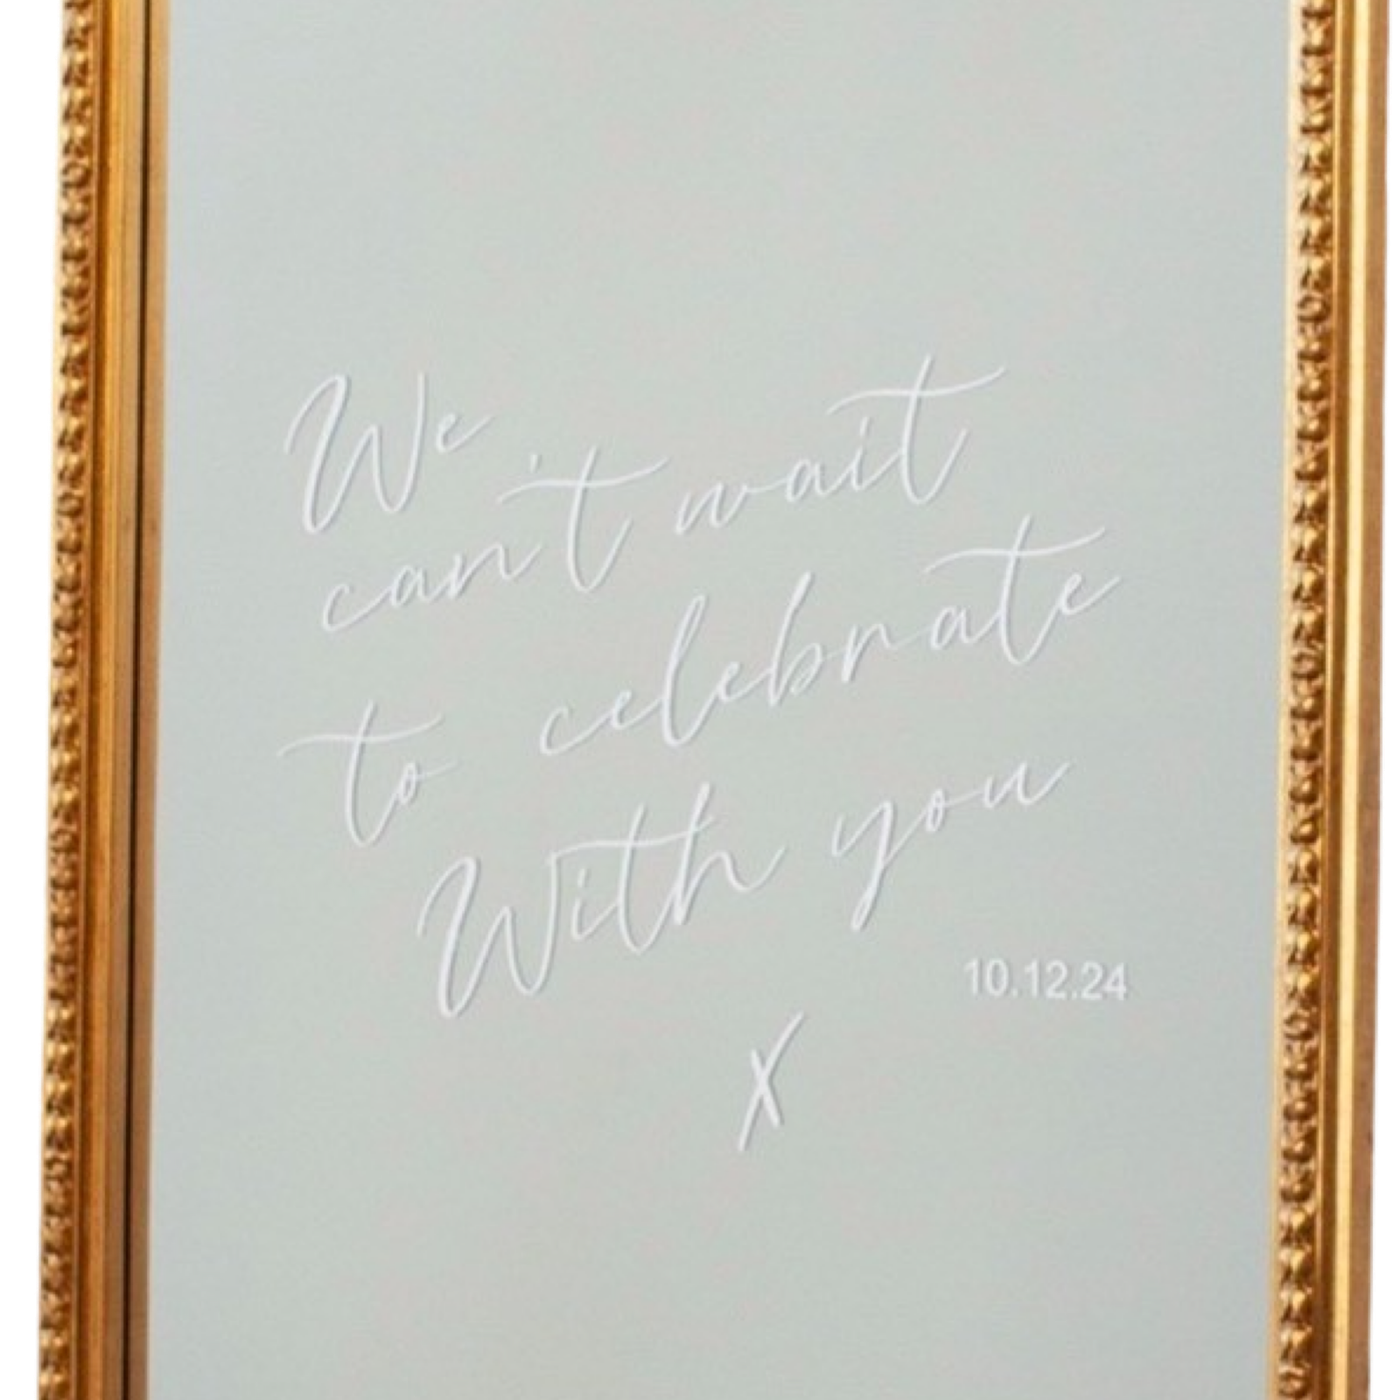 We
can't wait
to celebrate
With you
10.12.24
x